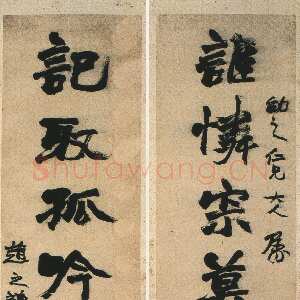 誰憐宗莫
幼之仁兄大人屬
記取孤吟
趙之謙
shufawang.CN